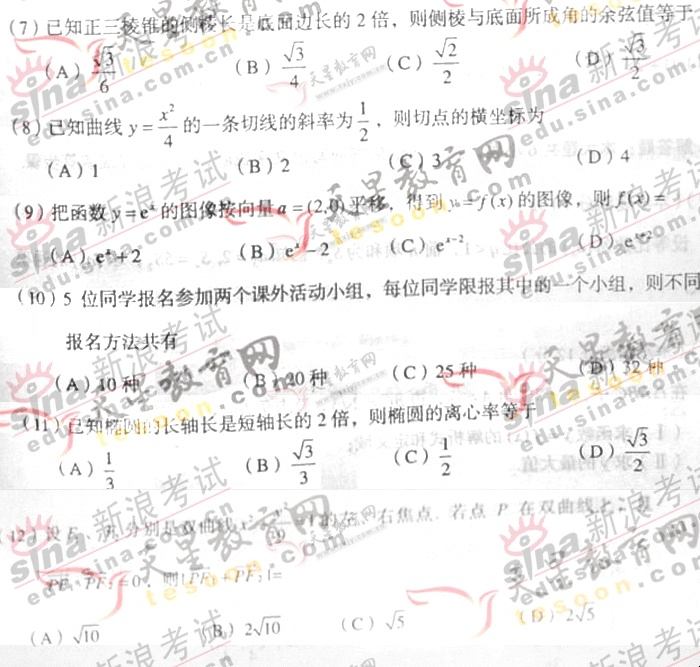 (7) 已知正三棱锥的侧棱长是底面边长的 2 倍，则侧棱与底面所成角的余弦值等于
(A) √3/6 (B) √3/4 (C) √2/2 (D) √3/2
(8) 已知曲线 y = x²/4 的一条切线的斜率为 1/2，则切点的横坐标为
(A) 1 (B) 2 (C) 3 (D) 4
(9) 把函数 y = eˣ 的图像按向量 a = (2,0) 平移，得到 y = f(x) 的图像，则 f(x) =
(A) eˣ + 2 (B) eˣ − 2 (C) eˣ⁻² (D) eˣ⁺²
(10) 5 位同学报名参加两个课外活动小组，每位同学限报其中的一个小组，则不同
报名方法共有
(A) 10 种 (B) 20 种 (C) 25 种 (D) 32 种
(11) 已知椭圆的长轴长是短轴长的 2 倍，则椭圆的离心率等于
(A) 1/3 (B) √3/3 (C) 1/2 (D) √3/2
(12) 设 分别是双曲线 的左、右焦点．若点 P 在双曲线上，且
= 0，则
(A) √10 (B) 2√10 (C) √5 (D) 2√5
新浪考试
sina
edu.sina.com.cn
天星教育网
tesoon.com